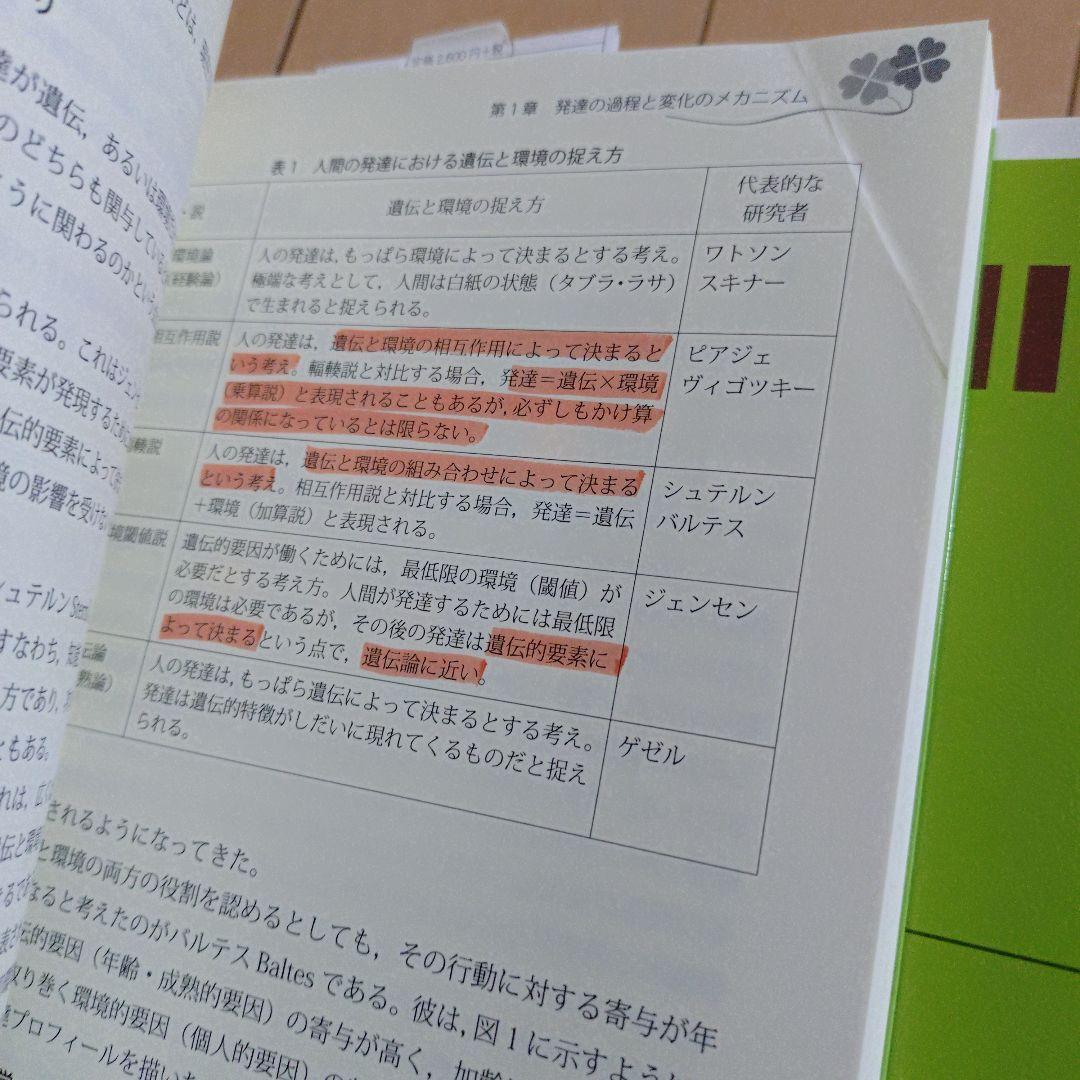 定価2,600円+税
第1章 発達の過程と変化のメカニズム
表1 人間の発達における遺伝と環境の捉え方
・説
遺伝と環境の捉え方
代表的な
研究者
環境論
(経験論)
人の発達は,もっぱら環境によって決まるとする考え。
極端な考えとして,人間は白紙の状態(タブラ・ラサ)
で生まれると捉えられる。
ワトソン
スキナー
相互作用説
人の発達は,遺伝と環境の相互作用によって決まると
いう考え。輻輳説と対比する場合,発達=遺伝×環境
(乗算説)と表現されることもあるが,必ずしもかけ算
の関係になっているとは限らない。
ピアジェ
ヴィゴツキー
輳説
人の発達は,遺伝と環境の組み合わせによって決まる
という考え。相互作用説と対比する場合,発達=遺伝
+環境(加算説)と表現される。
シュテルン
バルテス
境閾値説
遺伝的要因が働くためには,最低限の環境(閾値)が
必要だとする考え方。人間が発達するためには最低限
の環境は必要であるが,その後の発達は遺伝的要素に
よって決まるという点で,遺伝論に近い。
ジェンセン
伝論
熟論)
人の発達は,もっぱら遺伝によって決まるとする考え。
発達は遺伝的特徴がしだいに現れてくるものだと捉え
られる。
ゲゼル
されるようになってきた。
と環境の両方の役割を認めるとしても,その行動に対する寄与が年
なると考えたのがバルテスBaltesである。彼は,図1に示すように
伝的要因(年齢・成熟的要因)の寄与が高く,加齢
取り巻く環境的要因(個人的要因)の
達プロフィールを描いた
達が遺伝,あるいは環境
のどちらも関与している
ように関わるのかという
られる。これはジェン
要素が発現するため
伝的要素によって
境の影響を受けな
シュテルン Stern
すなわち,
方であり,
ともある。
れは,広
伝と環